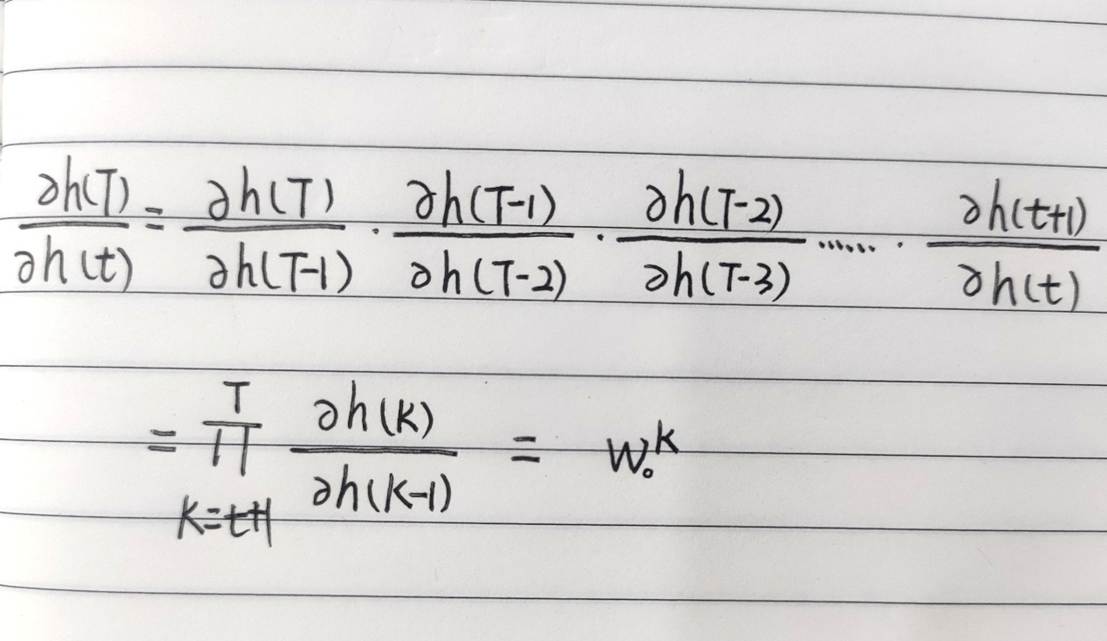 ∂h(T)/∂h(t) = ∂h(T)/∂h(T-1) · ∂h(T-1)/∂h(T-2) · ∂h(T-2)/∂h(T-3) ······ · ∂h(t+1)/∂h(t)
= ∏_{K=t+1}^{T} ∂h(K)/∂h(K-1) = W₀^K